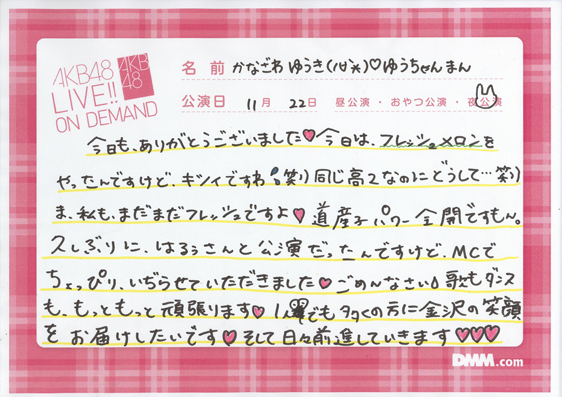 AKB48
LIVE!!
ON DEMAND
AKB
48
名 前 かなざわ ゆうき(ハ`ω´ハ)♡ゆうちゃんまん
公演日 11月 22日 昼公演・おやつ公演・夜公演
今日も、ありがとうございました♥今日は、フレッシュメロンを
やったんですけど、キツイですわ(笑)同じ高2なのにどうして…笑)
ま、私も、まだまだフレッシュですよ♥道産子パワー全開ですもん。
久しぶりに、はるぅさんと公演だったんですけど、MCで
ちょっぴり、いぢらせていただきました♥ごめんなさい!歌もダンス
も、もっともっと頑張ります♥1人でも多くの方に金沢の笑顔
をお届けしたいです♥そして日々前進していきます♥♥♥
DMM.com